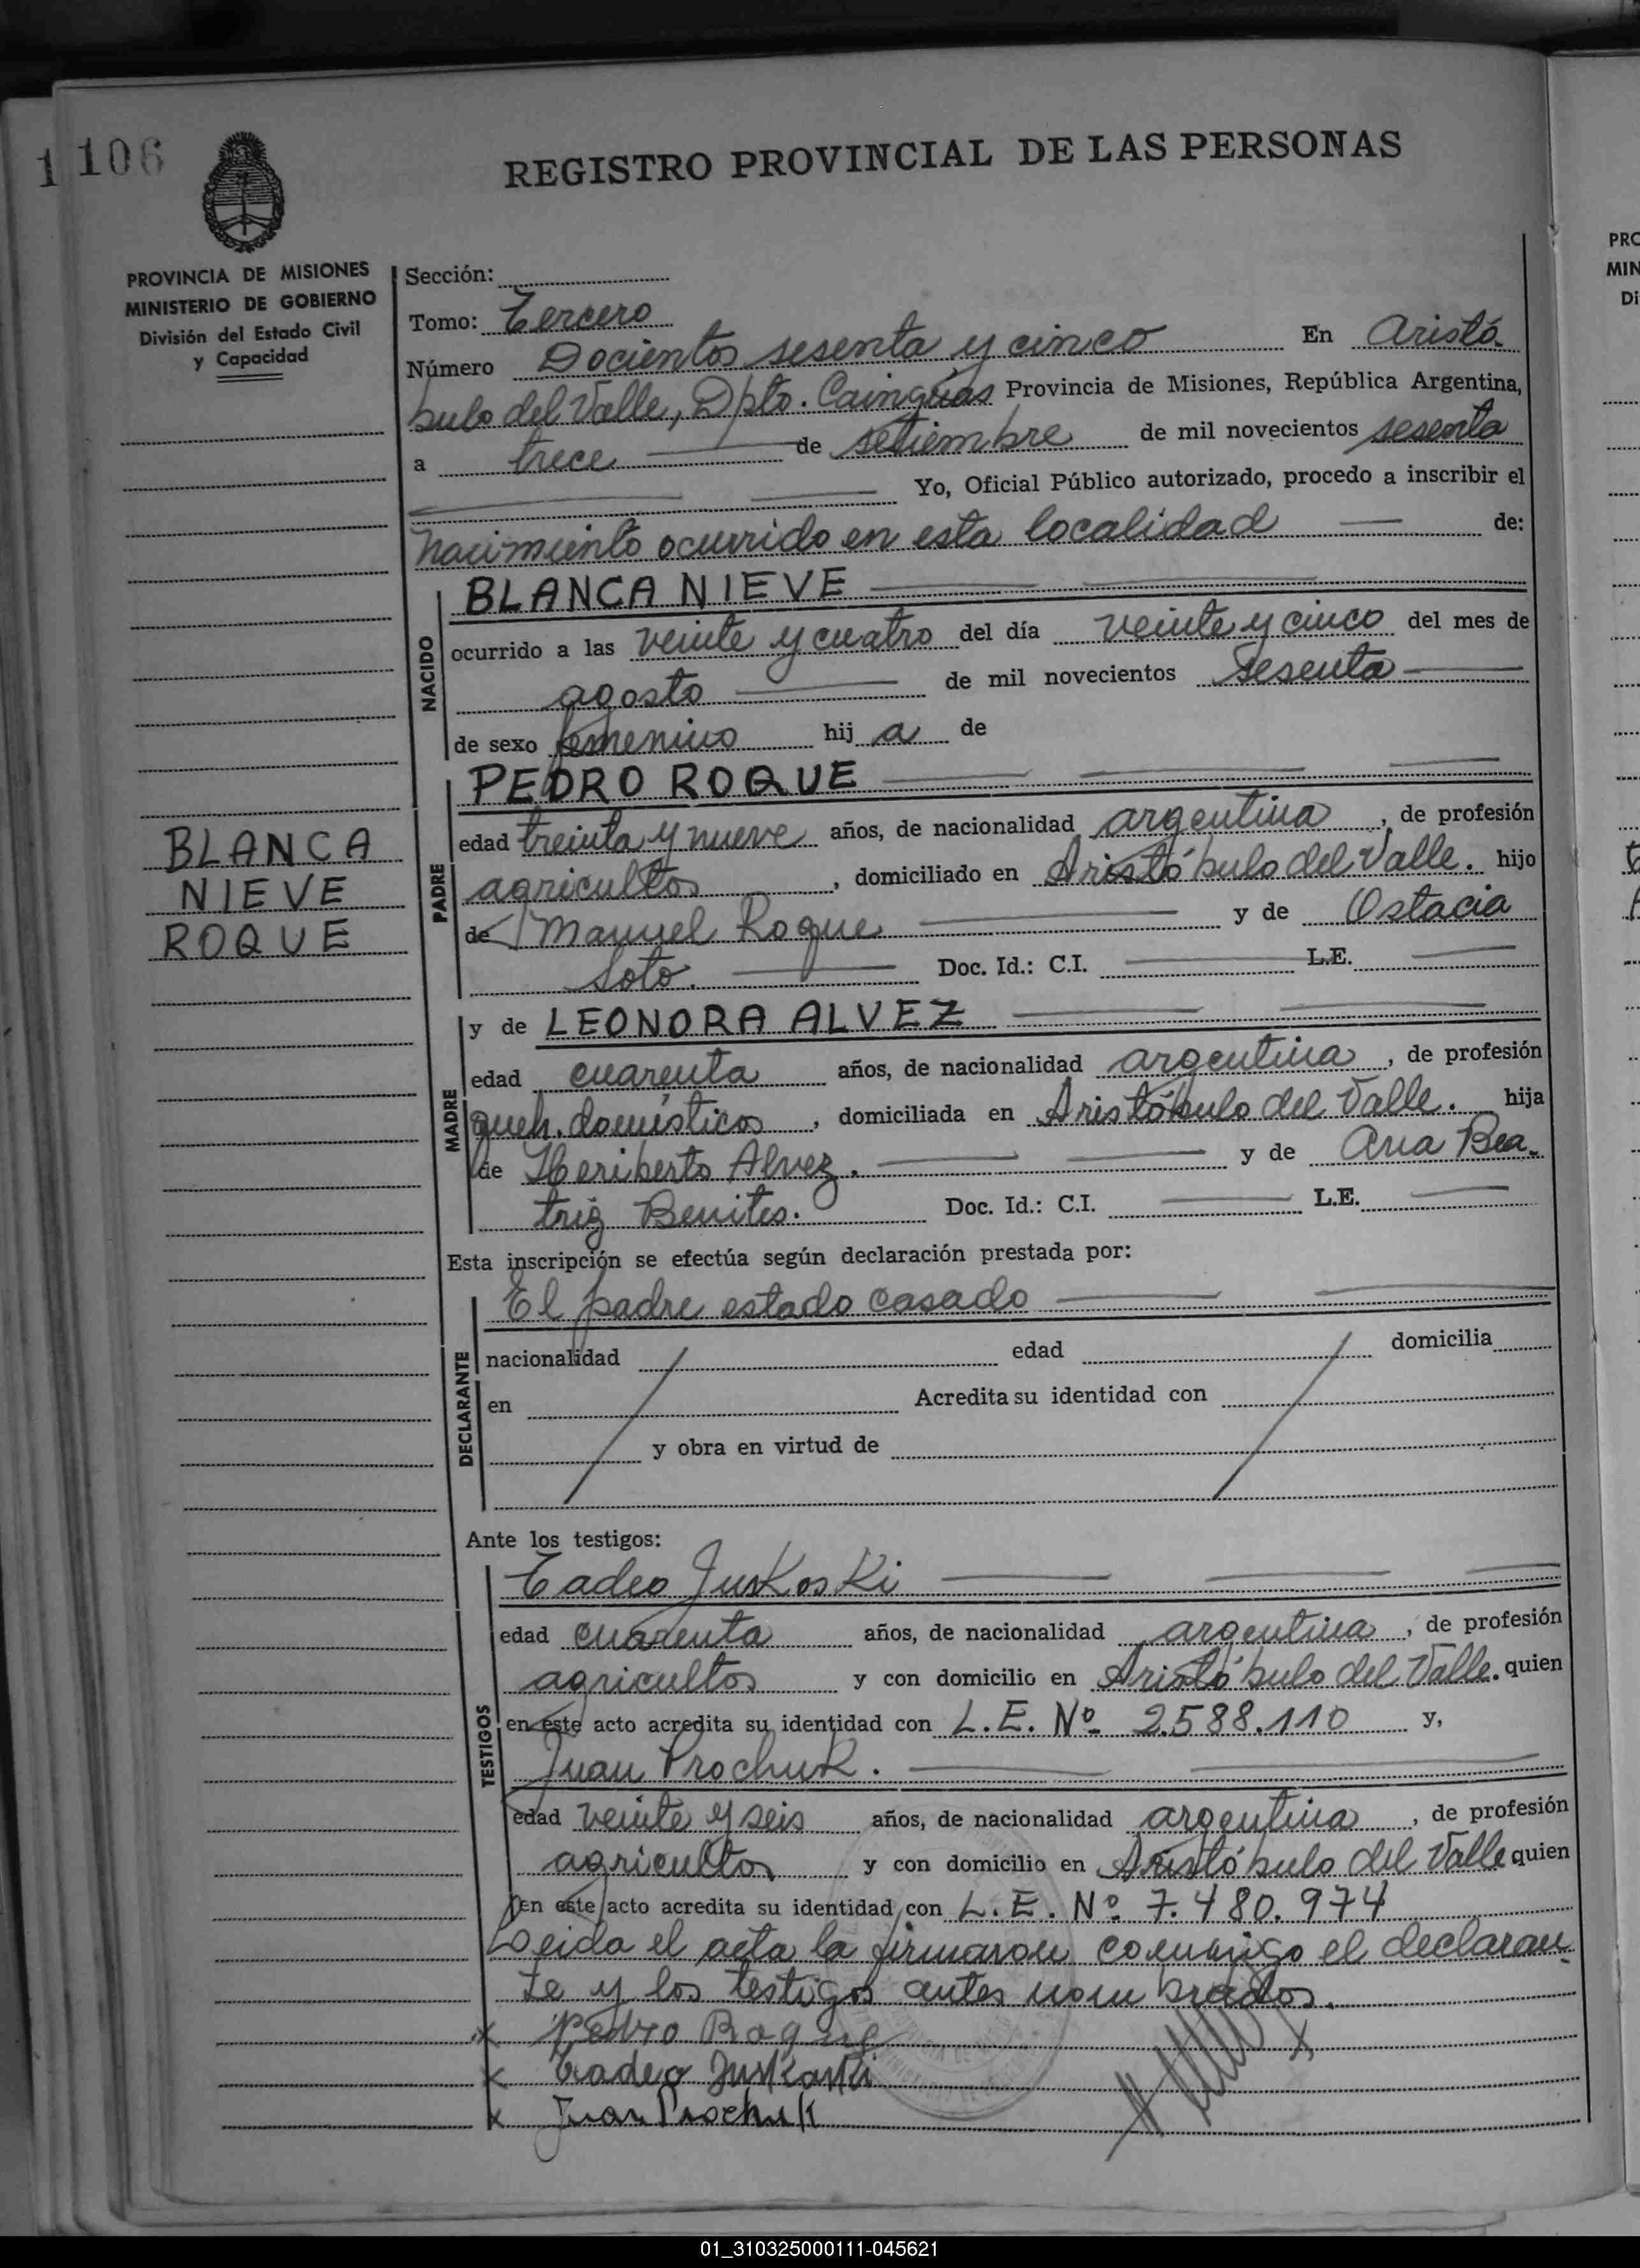 1 106
REGISTRO PROVINCIAL DE LAS PERSONAS
PROVINCIA DE MISIONES
MINISTERIO DE GOBIERNO
División del Estado Civil
y Capacidad
Sección:
Tomo: Tercero
Número Docientos sesenta y cinco En Aristó-
bulo del Valle, Dpto. Cainguás Provincia de Misiones, República Argentina,
a trece de setiembre de mil novecientos sesenta
Yo, Oficial Público autorizado, procedo a inscribir el
nacimiento ocurrido en esta localidad de:
NACIDO
BLANCA NIEVE
ocurrido a las veinte y cuatro del día veinte y cinco del mes de
agosto de mil novecientos sesenta
de sexo femenino hij a de
BLANCA
NIEVE
ROQUE
PADRE
PEDRO ROQUE
edad treinta y nueve años, de nacionalidad argentina, de profesión
agricultor, domiciliado en Aristóbulo del Valle. hijo
de Manuel Roque y de Ostacia
Soto. Doc. Id.: C.I. L.E.
MADRE
y de LEONORA ALVEZ
edad cuarenta años, de nacionalidad argentina, de profesión
queh. domésticos, domiciliada en Aristóbulo del Valle. hija
de Heriberto Alvez. y de Ana Bea-
triz Benites. Doc. Id.: C.I. L.E.
Esta inscripción se efectúa según declaración prestada por:
DECLARANTE
El padre estado casado
nacionalidad edad domicilia
en Acredita su identidad con
y obra en virtud de
Ante los testigos:
TESTIGOS
Tadeo Juskoski
edad cuarenta años, de nacionalidad argentina, de profesión
agricultor y con domicilio en Aristóbulo del Valle. quien
en este acto acredita su identidad con L.E. Nº 2.588.110 y,
Juan Prochuk.
edad veinte y seis años, de nacionalidad argentina, de profesión
agricultor y con domicilio en Aristóbulo del Valle quien
en este acto acredita su identidad con L.E. Nº 7.480.974
Leida el acta la firmaron conmigo el declaran-
te y los testigos antes nombrados.
x Pedro Roque
x Tadeo Juskoski
x Juan Prochuk
x
PRO
MIN
Di
01_310325000111-045621